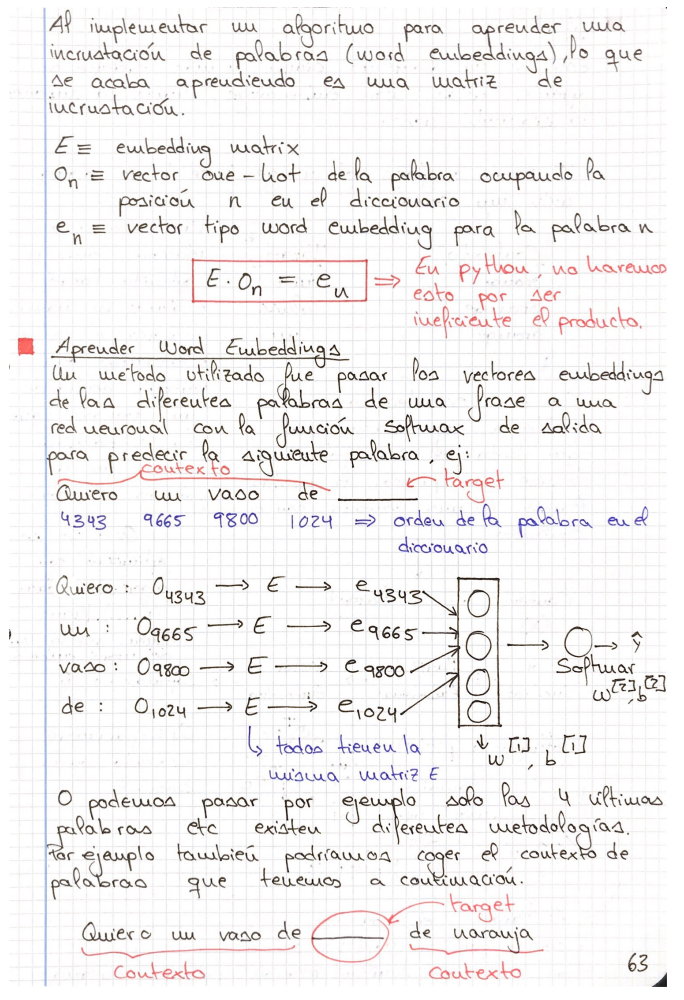 Al implementar un algoritmo para aprender una
incrustación de palabras (word embeddings), lo que
se acaba aprendiendo es una matriz de
incrustación.
E ≡ embedding matrix
On ≡ vector one-hot de la palabra ocupando la
posición n en el diccionario
en ≡ vector tipo word embedding para la palabra n
E · On = en ⇒ En python, no haremos
esto por ser
ineficiente el producto.
Aprender Word Embeddings
Un método utilizado fue pasar los vectores embeddings
de las diferentes palabras de una frase a una
red neuronal con la función softmax de salida
para predecir la siguiente palabra, ej:
contexto
target
Quiero un vaso de ______
4343 9665 9800 1024 ⇒ orden de la palabra en el
diccionario
Quiero : O4343 → E → e4343
un : O9665 → E → e9665
vaso : O9800 → E → e9800
de : O1024 → E → e1024
→ ŷ
Softmax
w[2], b[2]
w[1], b[1]
todos tienen la
misma matriz E
O podemos pasar por ejemplo solo las 4 últimas
palabras etc existen diferentes metodologías.
Por ejemplo también podríamos coger el contexto de
palabras que tenemos a continuación.
target
Quiero un vaso de ______ de naranja
contexto contexto
63